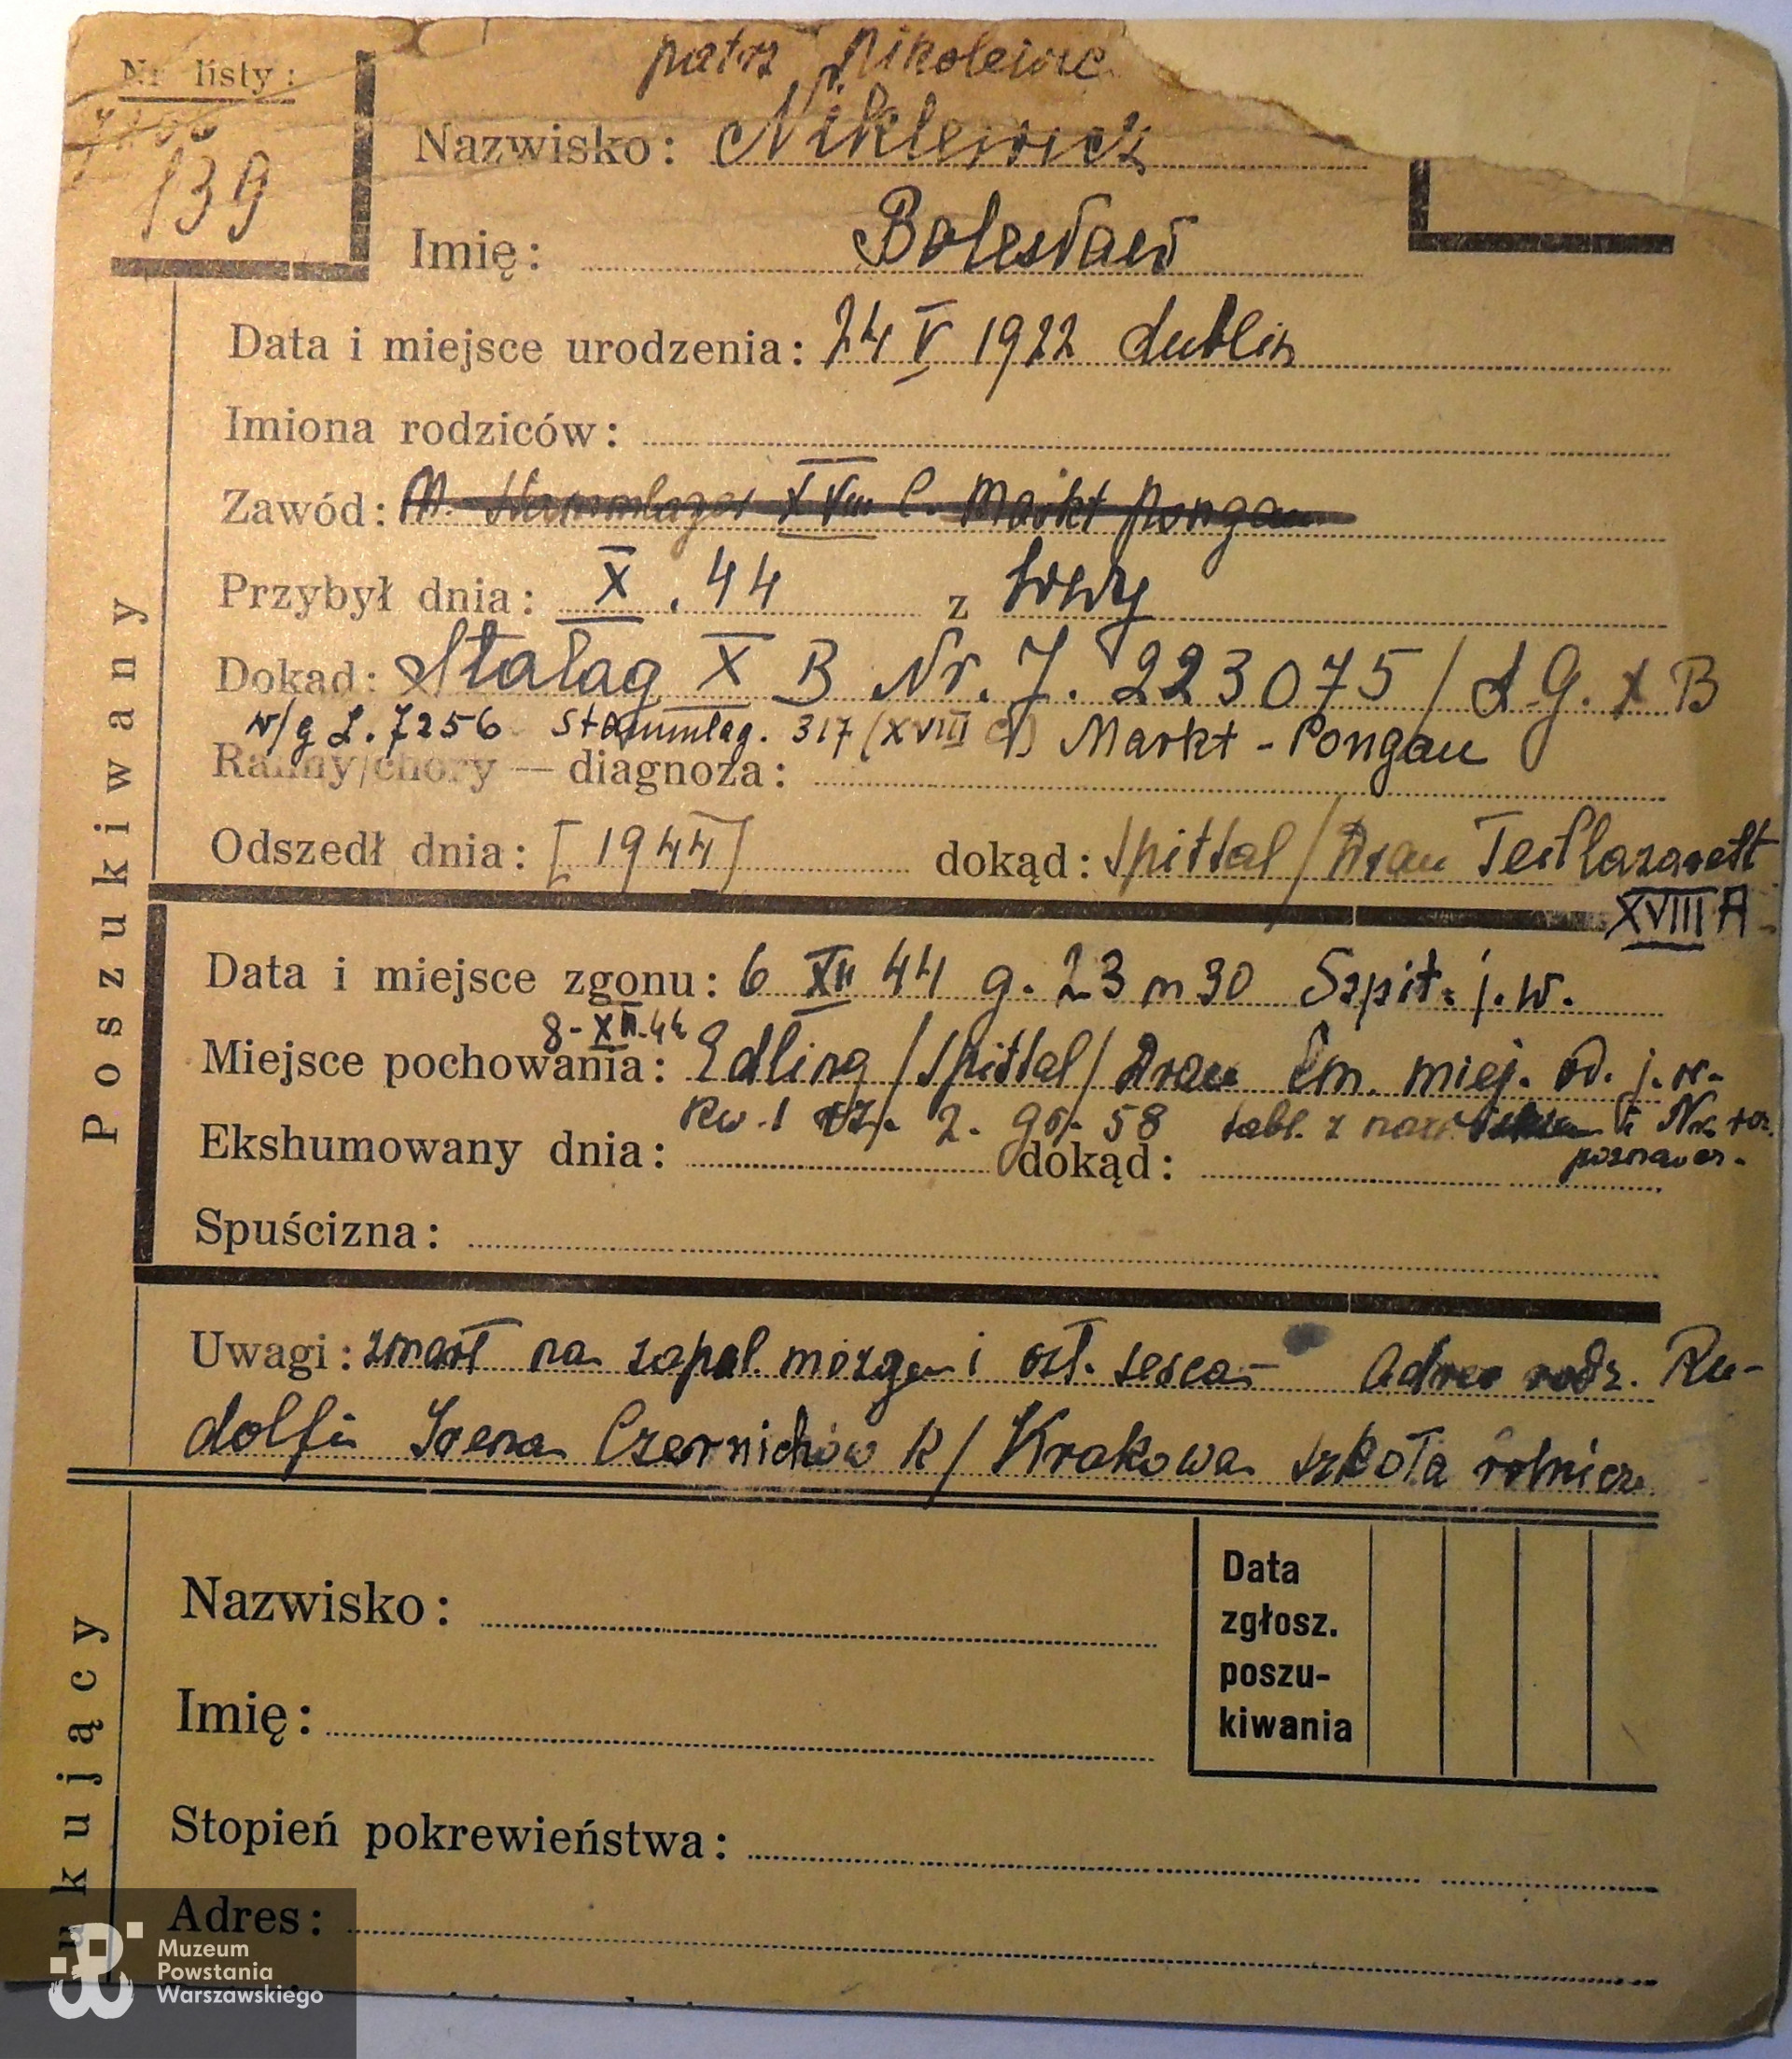 patrz Nikolewicz
Nr listy:
139
Nazwisko: Niklewicz
Imię: Bolesław
Data i miejsce urodzenia: 24 V 1922 Lublin
Imiona rodziców:
Zawód: M. Stammlager XVIII C. Markt Pongau
Przybył dnia: X . 44 z
Dokąd: Stalag X B Nr. J. 223075 / X B
w/g L. 7256 Stammlag. 317 (XVIII C) Markt-Pongau
Ranny/chory — diagnoza:
Odszedł dnia: [1944] dokąd: Spittal / Drau Teillazarett
XVIII A
Data i miejsce zgonu: 6 XII 44 g. 23 m 30 Szpit. j.w.
8-XII-44
Miejsce pochowania: Edling / Spittal / Drau Cm. miej. j.w.
kw. 1 rz. 2. gr. 58 tabl. z Nr. roz
poznawcz.
Ekshumowany dnia: dokąd:
Spuścizna:
Uwagi: zmarł na zapal. mózgu i osł. serca – Adres rodz. Ru-
dolfi Irena Czernichów k/Krakowa szkoła rolnicza
Poszukiwany
Nazwisko:
Imię:
Data
zgłosz.
poszu-
kiwania
Stopień pokrewieństwa:
Adres:
ukujący
Muzeum
Powstania
Warszawskiego